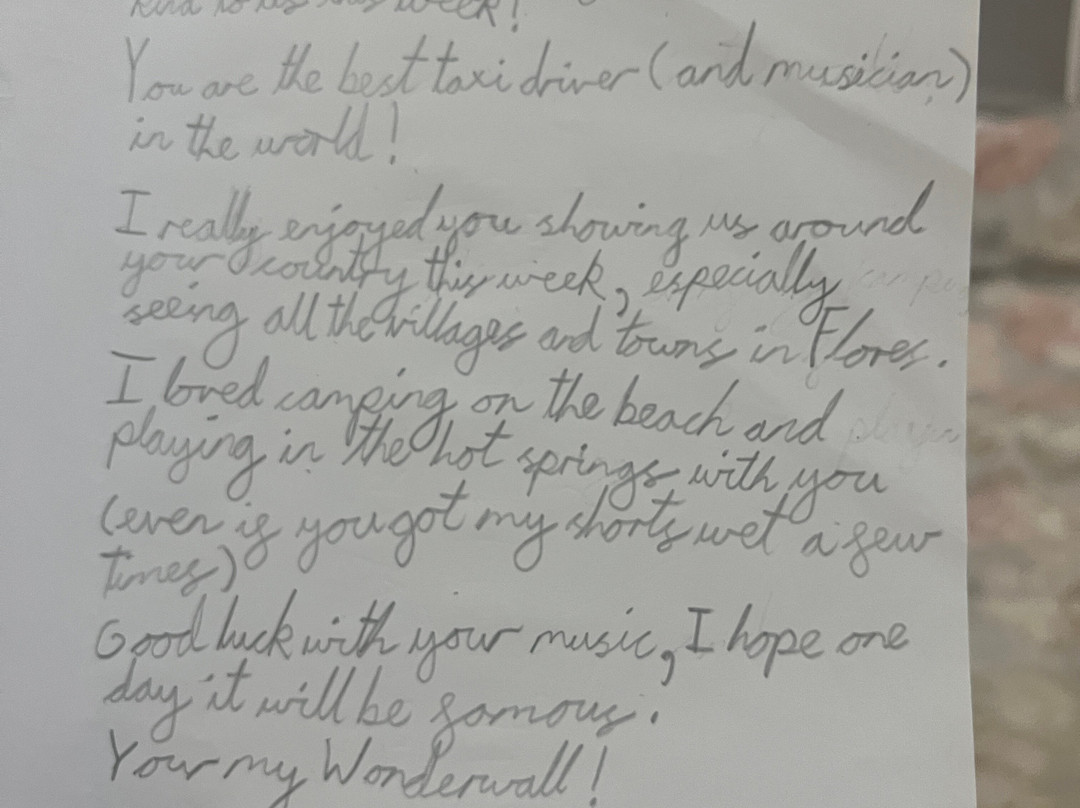 kind to us this week!
You are the best taxi driver (and musician)
in the world!
I really enjoyed you showing us around
your country this week, especially
seeing all the villages and towns in Flores.
I loved camping on the beach and
playing in the hot springs with you
(even if you got my shorts wet a few
times)
Good luck with your music, I hope one
day it will be famous.
Your my Wonderwall!